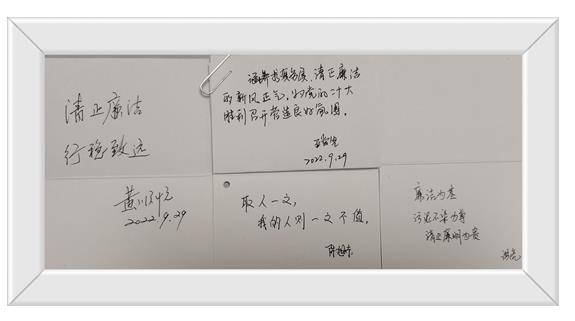 清正廉洁
行稳致远
2022.9.29
涵养求真务实、清正廉洁
的新风正气,为党的二十大
胜利召开营造良好氛围。
2022.9.29
取人一文,
我的人则一文不值。
廉洁为基
污泥不染为尊
清正廉明为贵